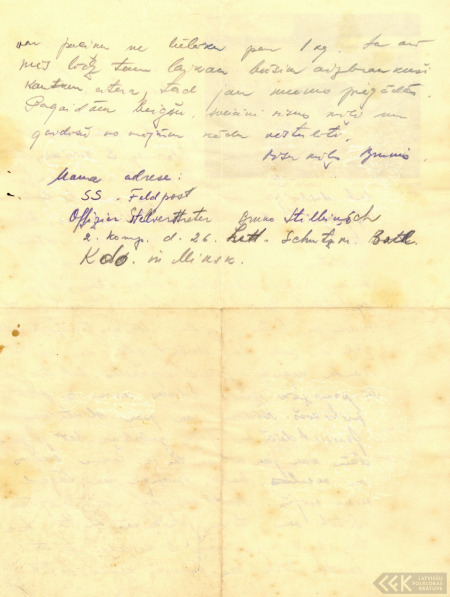 var paciņu ne lielāku par 1 kg. Ja arī
mēs līdz tam laikam būsim aizbraukuši
kautkur citur, tad jau mums piegādās.
Pagaidām beigšu, sveicini visus mīļi un
gaidošu no mājām kādu vēstulīti.
mīļi Bruno.
Mana adrese:
SS - Feldpost
Offizier Stellvertreter Bruno
2. Komp. d. 26. Lett. Schutzm. Batl.
Kdo. in Minsk.
LATVIEŠU
FOLKLORAS
KRĀTUVE